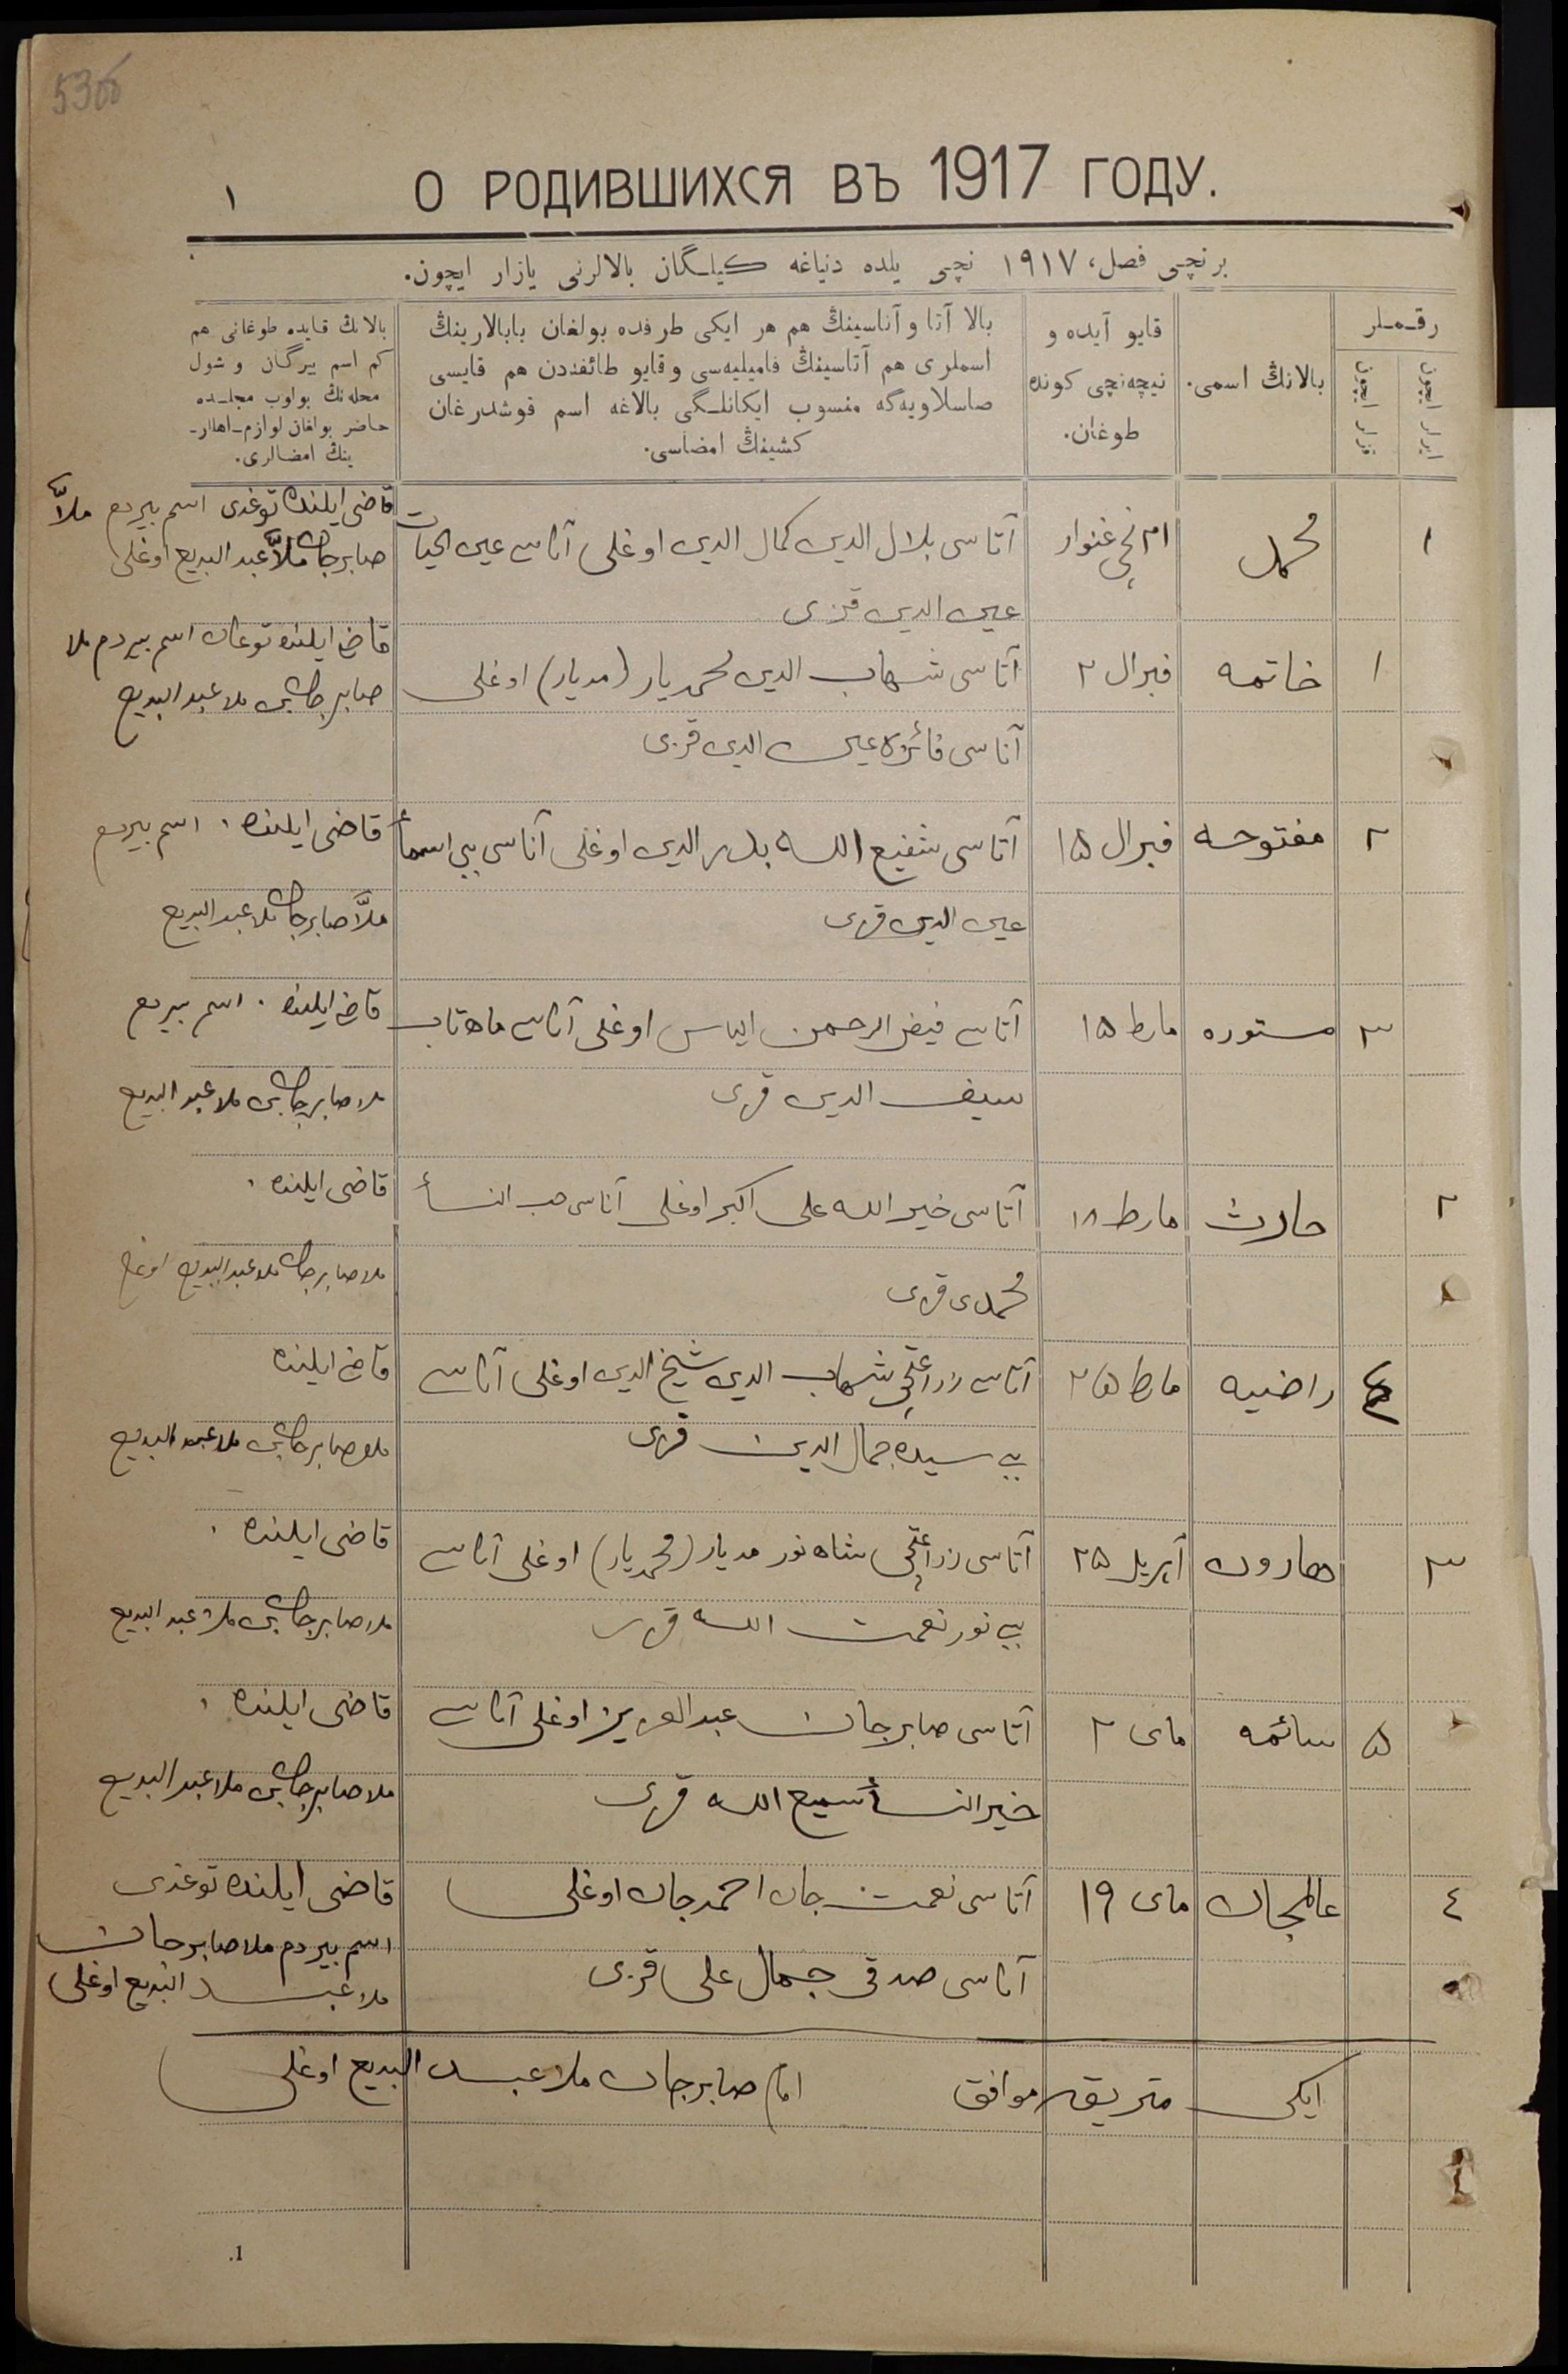 536
О РОДИВШИХСЯ ВЪ 1917 ГОДУ.
١
برنچی فصل، ١٩١٧ نچی یلده دنیاغه کیلگان بالالرنی یازار ایچون.
رقملر
ایرلر ایچون
قزلر ایچون
بالانڭ اسمی.
قایو آیده و
نیچه‌نچی کونده
طوغان.
بالا آتا و آناسینڭ هم هر ایکی طرفده بولغان بابالارینڭ
اسملری هم آتاسینڭ فامیلیه‌سی و قایو طائفه‌دن هم قایسی
صاسلاویه‌گه منسوب ایکانلگی بالاغه اسم قوشدرغان
کشینڭ امضاسی.
بالانڭ قایده طوغانی هم
کم اسم بیرگان و شول
محله‌نڭ بولوب مجلسده
حاضر بولغان لوازم اهللر-
ینڭ امضالری.
١
محمد
غنوار
آتاسی بلال الدین کمال الدین اوغلی آناسی عین الحیات
عین الدین قزی
قاضی ایلنده توغدی اسم بیردم ملاّ
صابرجان ملاّ عبد البدیع اوغلی
١
خاتمه
فبرال ٢
آتاسی شهاب الدین محمدیار (مدیار) اوغلی
آناسی فائزه عین الدین قزی
قاضی ایلنده توغان اسم بیردم ملا
صابرجان ملا عبد البدیع
٢
مفتوحه
فبرال ١٥
آتاسی شفیع الله بدر الدین اوغلی آناسی بیبی اسمأ
عین الدین قزی
قاضی ایلنده . اسم بیردم
ملاّ صابرجان ملا عبد البدیع
٣
مستوره
مارط ١٥
آتاسی فیض الرحمن الیاس اوغلی آناسی ماهتاب
سیف الدین قزی
قاضی ایلنده . اسم بیردم
ملا صابرجان ملا عبد البدیع
٢
حارث
مارط ١٨
آتاسی خیر الله علی اکبر اوغلی آناسی حب النسأ
محمدی قزی
قاضی ایلنده .
ملا صابرجان ملا عبد البدیع اوغلی
٤
راضیه
مارط ٢٥
آتاسی زراعتچی شهاب الدین شیخ الدین اوغلی آناسی
بی سیده جمال الدین قزی
قاضی ایلنده
ملا صابرجان ملا عبد البدیع
٣
هارون
آپریل ٢٥
آتاسی زراعتچی شاه نور مدیار (محمدیار) اوغلی آناسی
بی نور نعمت الله قزی
قاضی ایلنده .
ملا صابرجان ملا عبد البدیع
٥
سائمه
مای ٢
آتاسی صابرجان عبد العزیز اوغلی آناسی
خیر النسأ سمیع الله قزی
قاضی ایلنده .
ملا صابرجان ملا عبد البدیع
٤
عالمجان
مای ١٩
آتاسی نعمت جان احمدجان اوغلی
آناسی صدقی جمال علی قزی
قاضی ایلنده توغدی
اسم بیردم ملا صابرجان
ملا عبد البدیع اوغلی
ایکی متریقه موافق امام صابرجان ملا عبد البدیع اوغلی
1.